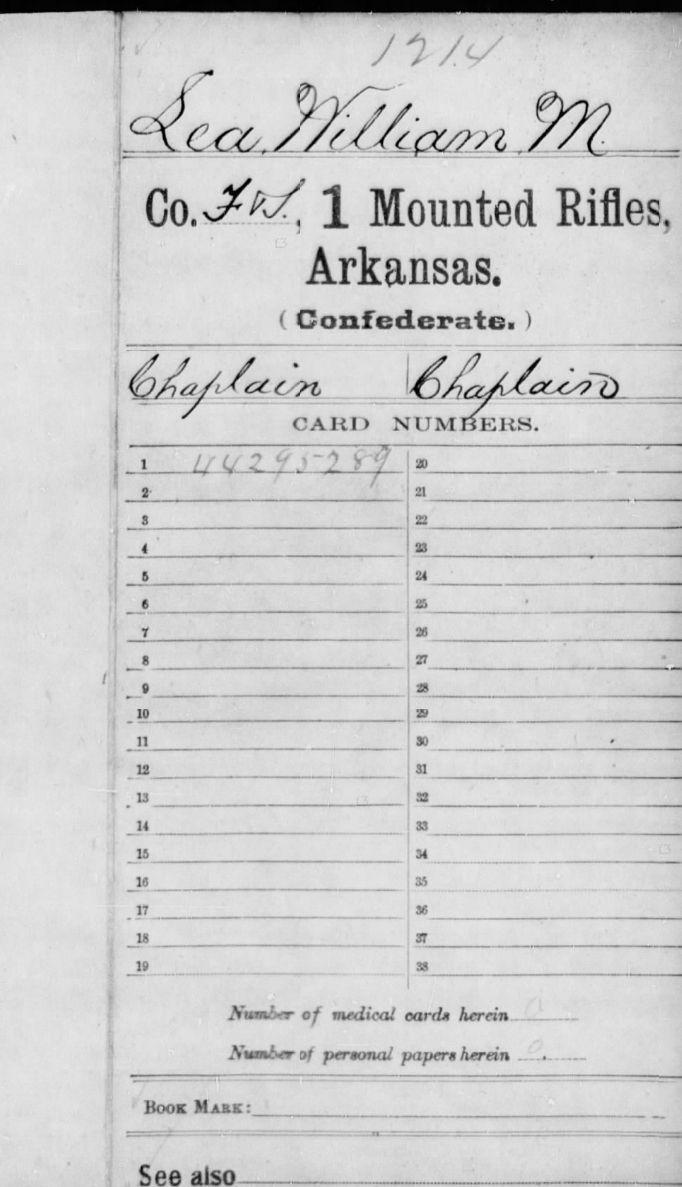 1214
Lea, William M.
Co. F&S., 1 Mounted Rifles,
Arkansas.
(Confederate.)
Chaplain Chaplain
CARD NUMBERS.
1 44295289 20
2 21
3 22
4 23
5 24
6 25
7 26
8 27
9 28
10 29
11 30
12 31
13 32
14 33
15 34
16 35
17 36
18 37
19 38
Number of medical cards herein 0
Number of personal papers herein 0
BOOK MARK:
See also